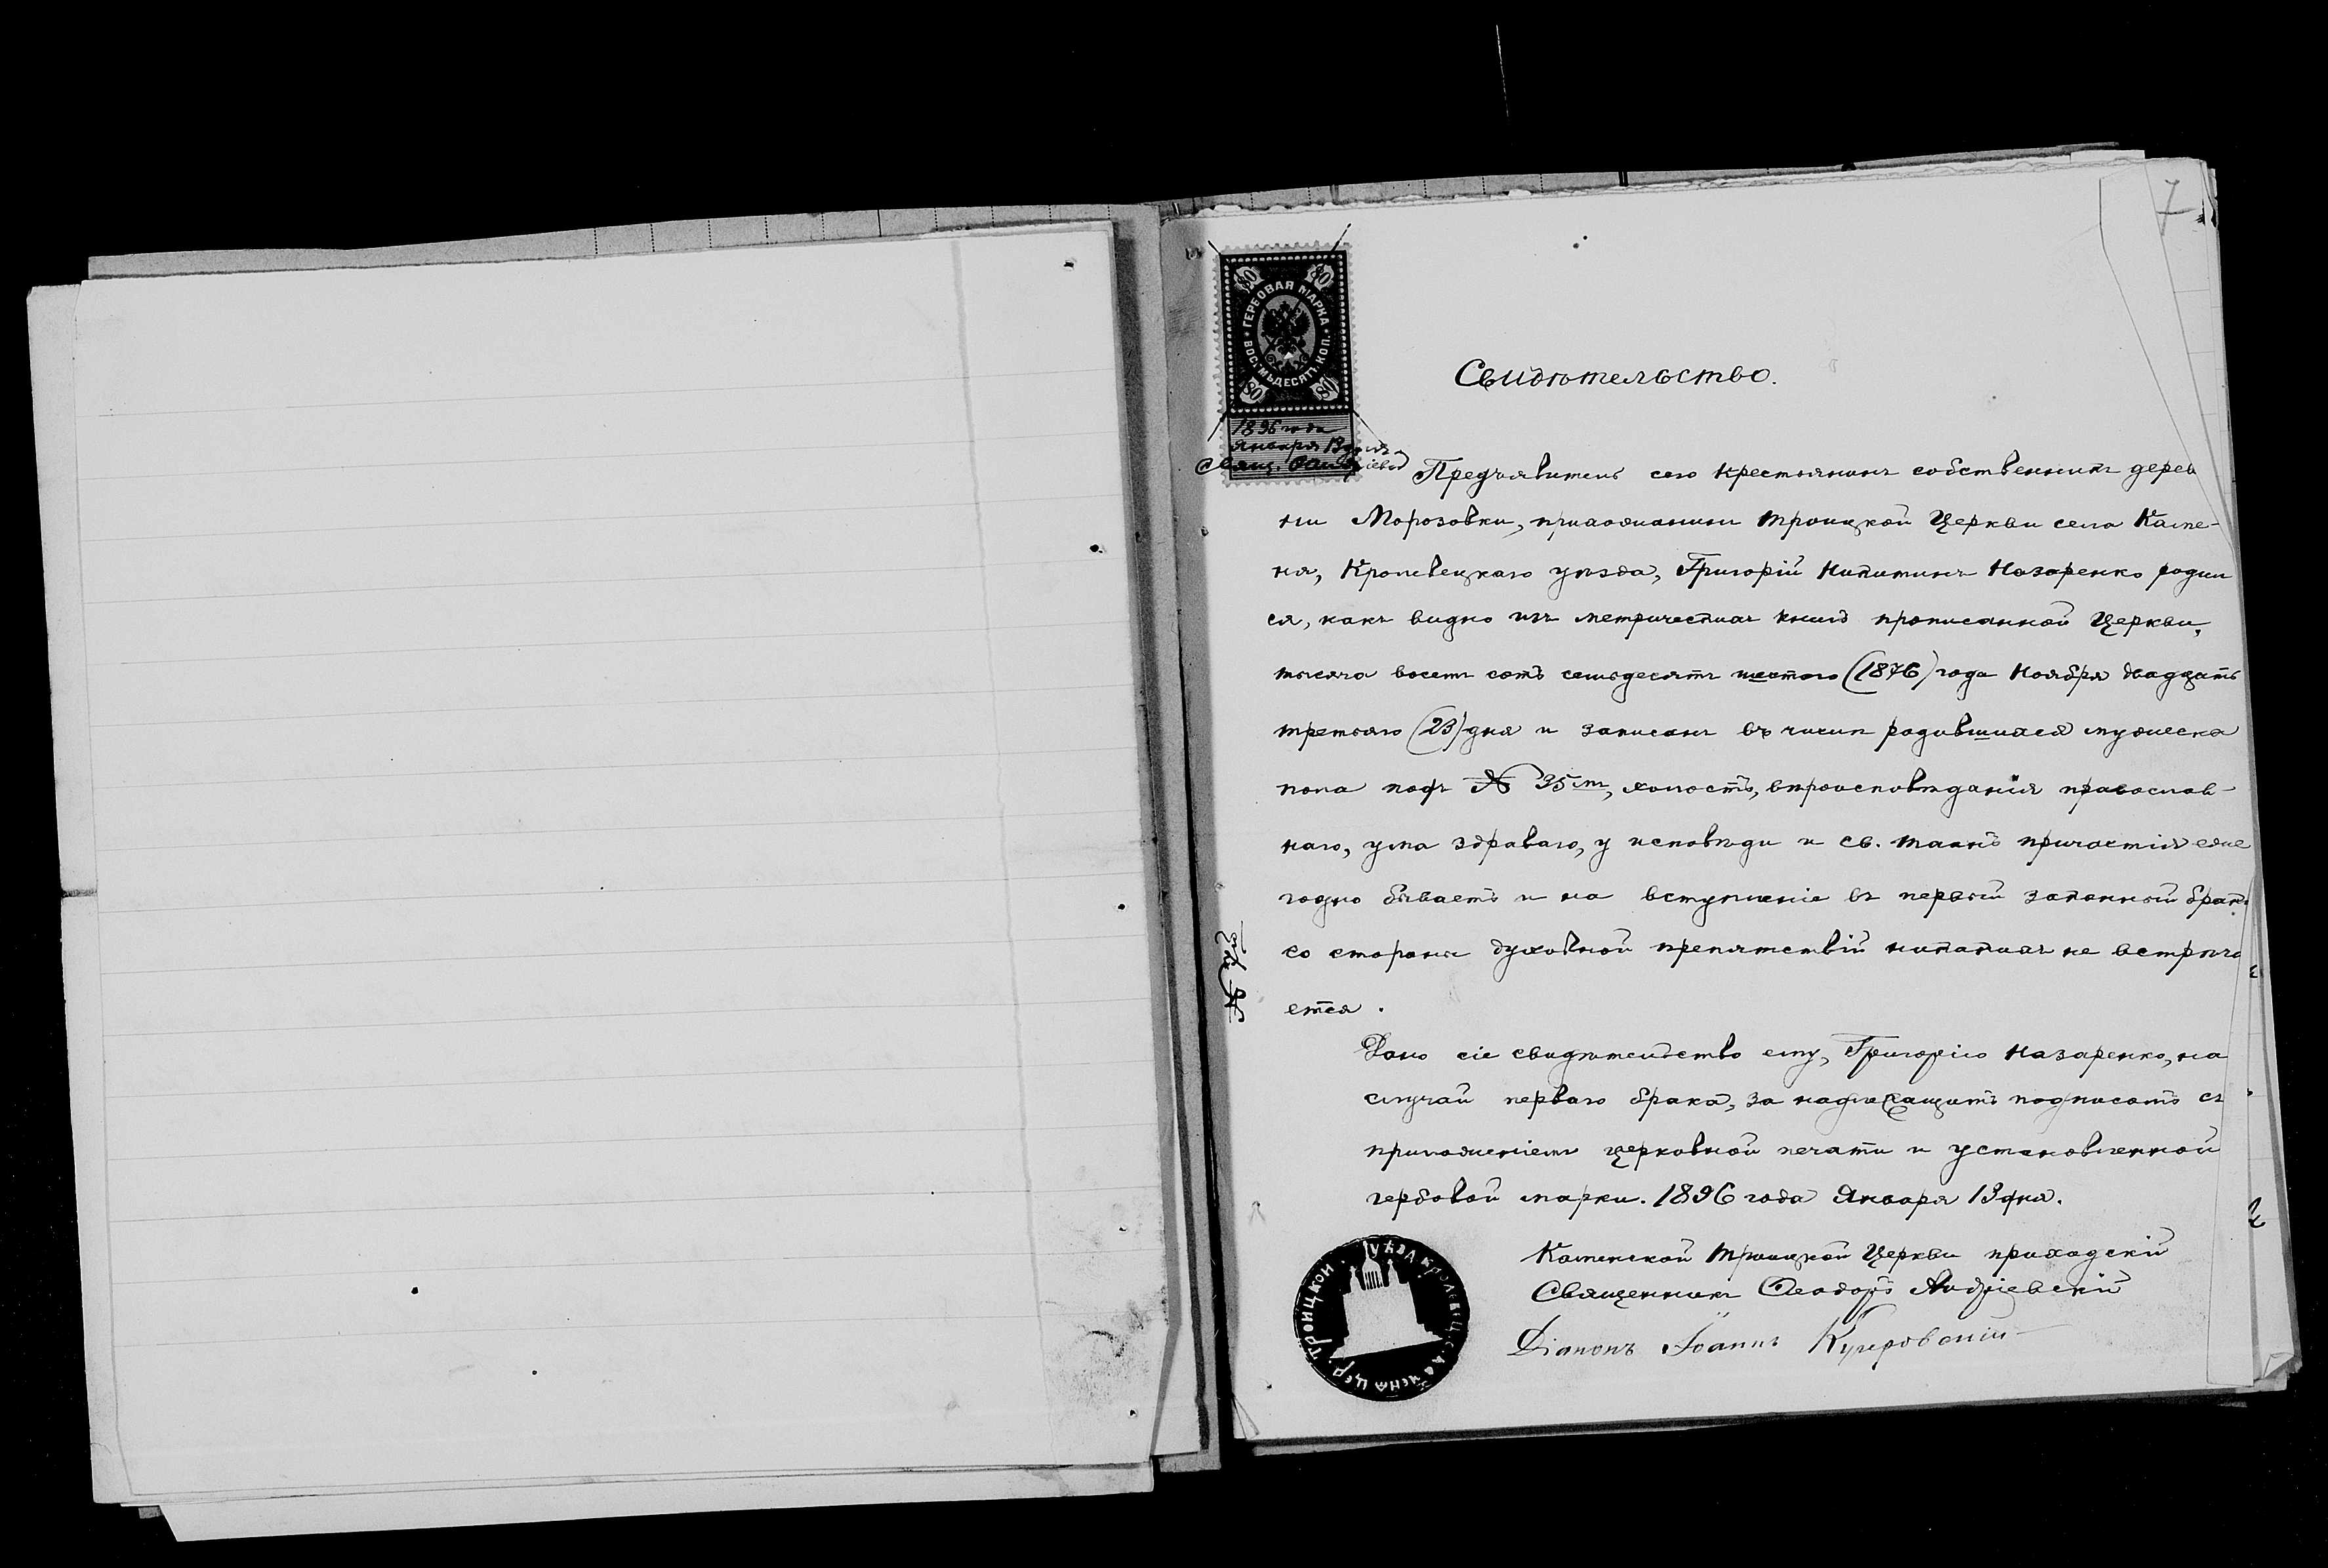 7
80 80
ГЕРБОВАЯ МАРКА
ВОСЕМЬДЕСЯТЪ КОП.
80 80
1896 года
Января 13 дня
Свидѣтельство.
Предъявитель сего крестьянинъ собственникъ дерев
ни Морозовки, прихожанинъ Троицкой Церкви села Каме-
ня, Кролевецкаго уѣзда, Григорій Никитинъ Назаренко родил
ся, какъ видно изъ метрическихъ книгъ прописанной Церкви,
тысяча восемъ сотъ семьдесятъ шестого (1876) года Ноября двадцать
третьяго (23) дня и записанъ въ числѣ родившихся мужеска
пола подъ № 35 м, холостъ, вѣроисповѣданія православ-
наго, ума здраваго, у исповѣди и св. таинъ причастія еже
годно бываетъ и на вступленіе въ первый законный бракъ
со стороны духовной препятствій никакихъ не встрѣча
ется.
Дано сіе свидѣтельство ему, Григорію Назаренко, на
случай перваго брака, за надлежащимъ подписомъ съ
приложеніемъ церковной печати и установленной
гербовой марки. 1896 года Января 13 дня.
Каменской Троицкой Церкви приходскій
Священникъ Ѳеодоръ Андріевскій
Діаконъ Іоаннъ